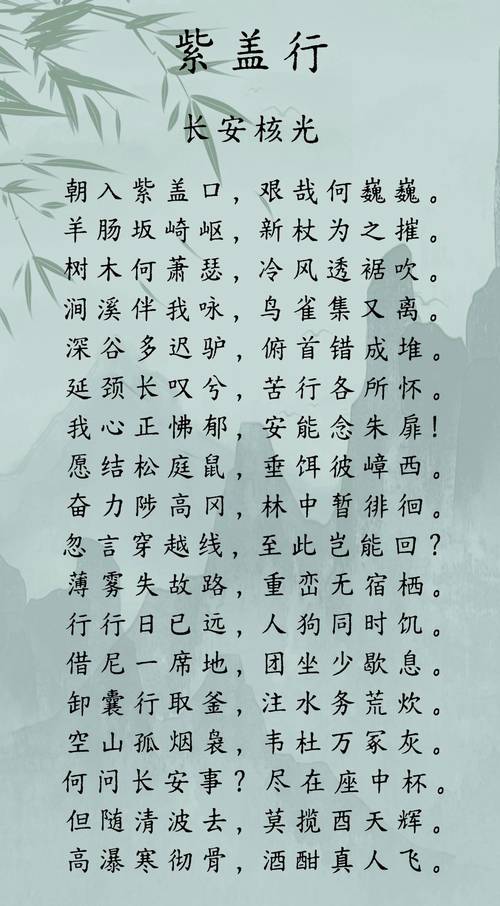 紫盖行
长安核光
朝入紫盖口，艰哉何巍巍。
羊肠坂崎岖，新杖为之摧。
树木何萧瑟，冷风透裾吹。
涧溪伴我咏，鸟雀集又离。
深谷多迟驴，俯首错成堆。
延颈长叹兮，苦行各所怀。
我心正怫郁，安能念朱扉！
愿结松庭鼠，垂饵彼嶂西。
奋力陟高冈，林中暂徘徊。
忽言穿越线，至此岂能回？
薄雾失故路，重峦无宿栖。
行行日已远，人狗同时饥。
借尼一席地，团坐少歇息。
卸囊行取釜，注水务荒炊。
空山孤烟袅，韦杜万冢灰。
何问长安事？尽在座中杯。
但随清波去，莫揽酉天辉。
高瀑寒彻骨，酒酣真人飞。